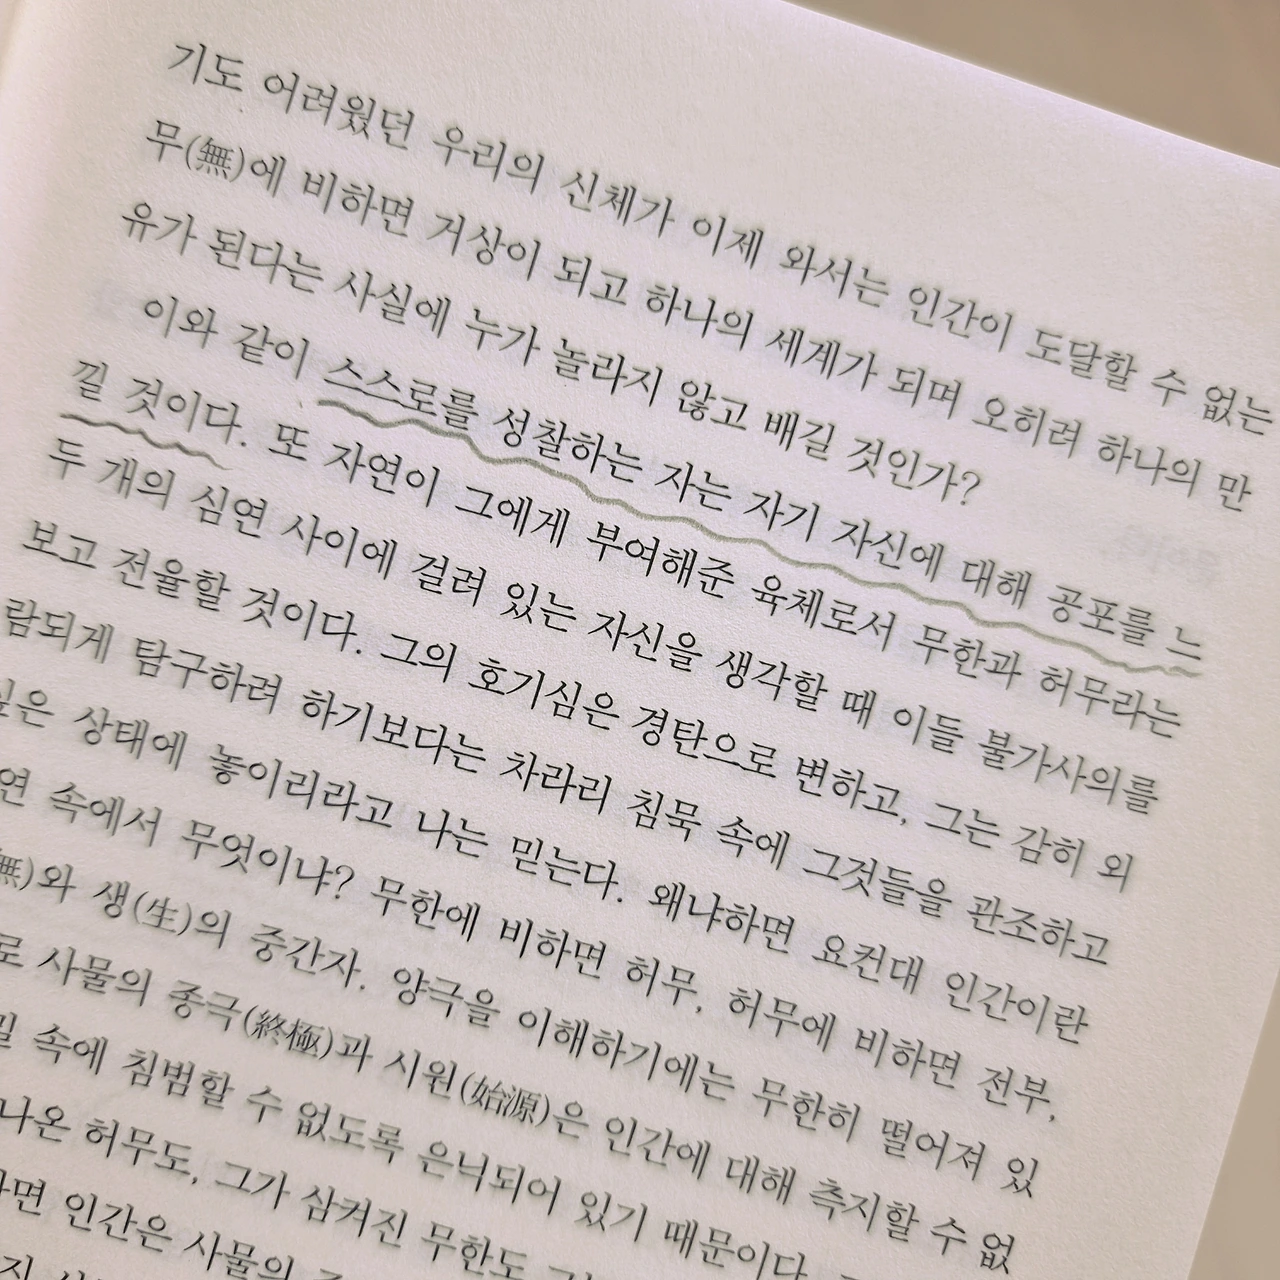 기도 어려웠던 우리의 신체가 이제 와서는 인간이 도달할 수 없는
무(無)에 비하면 거상이 되고 하나의 세계가 되며 오히려 하나의 만
유가 된다는 사실에 누가 놀라지 않고 배길 것인가?
이와 같이 스스로를 성찰하는 자는 자기 자신에 대해 공포를 느
낄 것이다. 또 자연이 그에게 부여해준 육체로서 무한과 허무라는
두 개의 심연 사이에 걸려 있는 자신을 생각할 때 이들 불가사의를
보고 전율할 것이다. 그의 호기심은 경탄으로 변하고, 그는 감히 외
람되게 탐구하려 하기보다는 차라리 침묵 속에 그것들을 관조하고
싶은 상태에 놓이리라고 나는 믿는다. 왜냐하면 요컨대 인간이란
연 속에서 무엇이냐? 무한에 비하면 허무, 허무에 비하면 전부,
無)와 생(生)의 중간자. 양극을 이해하기에는 무한히 떨어져 있
로 사물의 종극(終極)과 시원(始源)은 인간에 대해 측지할 수 없
밀 속에 침범할 수 없도록 은닉되어 있기 때문이다.
나온 허무도, 그가 삼켜진 무한도
면 인간은 사물의